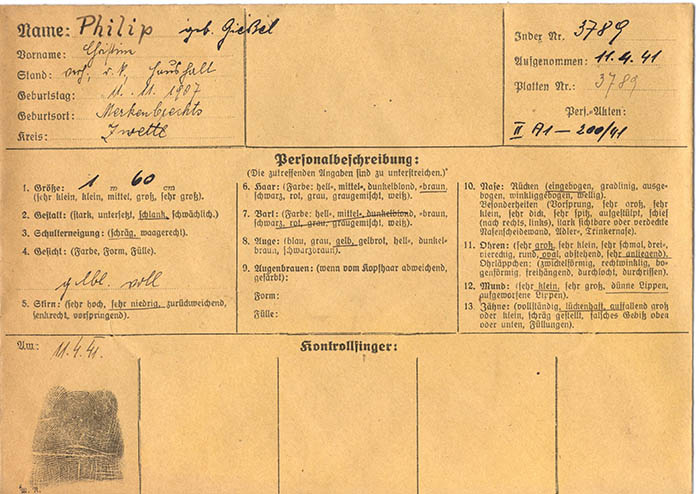 Name: Philip geb. Gießel
Vorname: Christine
Stand: verh., r. k., Haushalt
Geburtstag: 11. 11. 1907
Geburtsort: Merkenbrechts
Kreis: Zwettl
Index Nr. 3789
Aufgenommen: 11.4.41
Platten Nr.: 3789
Pers.-Akten:
II A1 — 200/41
Personalbeschreibung:
(Die zutreffenden Angaben sind zu unterstreichen.)
1. Größe: 1 m 60 cm
(sehr klein, klein, mittel, groß, sehr groß).
2. Gestalt: (stark, untersetzt, schlank, schwächlich.)
3. Schulterneigung: (schräg, waagerecht).
4. Gesicht: (Farbe, Form, Fülle).
gelbl. voll
5. Stirn: (sehr hoch, sehr niedrig, zurückweichend,
senkrecht, vorspringend).
6. Haar: (Farbe: hell-, mittel-, dunkelblond, -braun,
schwarz, rot, grau, graugemischt, weiß).
7. Bart: (Farbe: hell-, mittel-, dunkelblond, -braun,
schwarz, rot, grau, graugemischt, weiß).
8. Auge: (blau, grau, gelb, gelbrot, hell-, dunkel-
braun, schwarzbraun).
9. Augenbrauen: (wenn vom Kopfhaar abweichend,
gefärbt):
Form:
Fülle:
10. Nase: Rücken (eingebogen, gradlinig, ausge-
bogen, winkliggebogen, wellig).
Besonderheiten (Vorsprung, sehr groß, sehr
klein, sehr dick, sehr spitz, aufgestülpt, schief
(nach rechts, links), stark sichtbare oder verdeckte
Nasenscheidewand, Adler-, Trinkernase).
11. Ohren: (sehr groß, sehr klein, sehr schmal, drei-,
viereckig, rund, oval, abstehend, sehr anliegend).
Ohrläppchen: (zwickelförmig, rechtwinklig, bo-
genförmig, freihängend, durchlocht, durchrissen).
12. Mund: (sehr klein, sehr groß, dünne Lippen,
aufgeworfene Lippen).
13. Zähne: (vollständig, lückenhaft, auffallend groß
oder klein, schräg gestellt, falsches Gebiß oben
oder unten, Füllungen).
Am: 11.4.41.
Kontrollfinger: